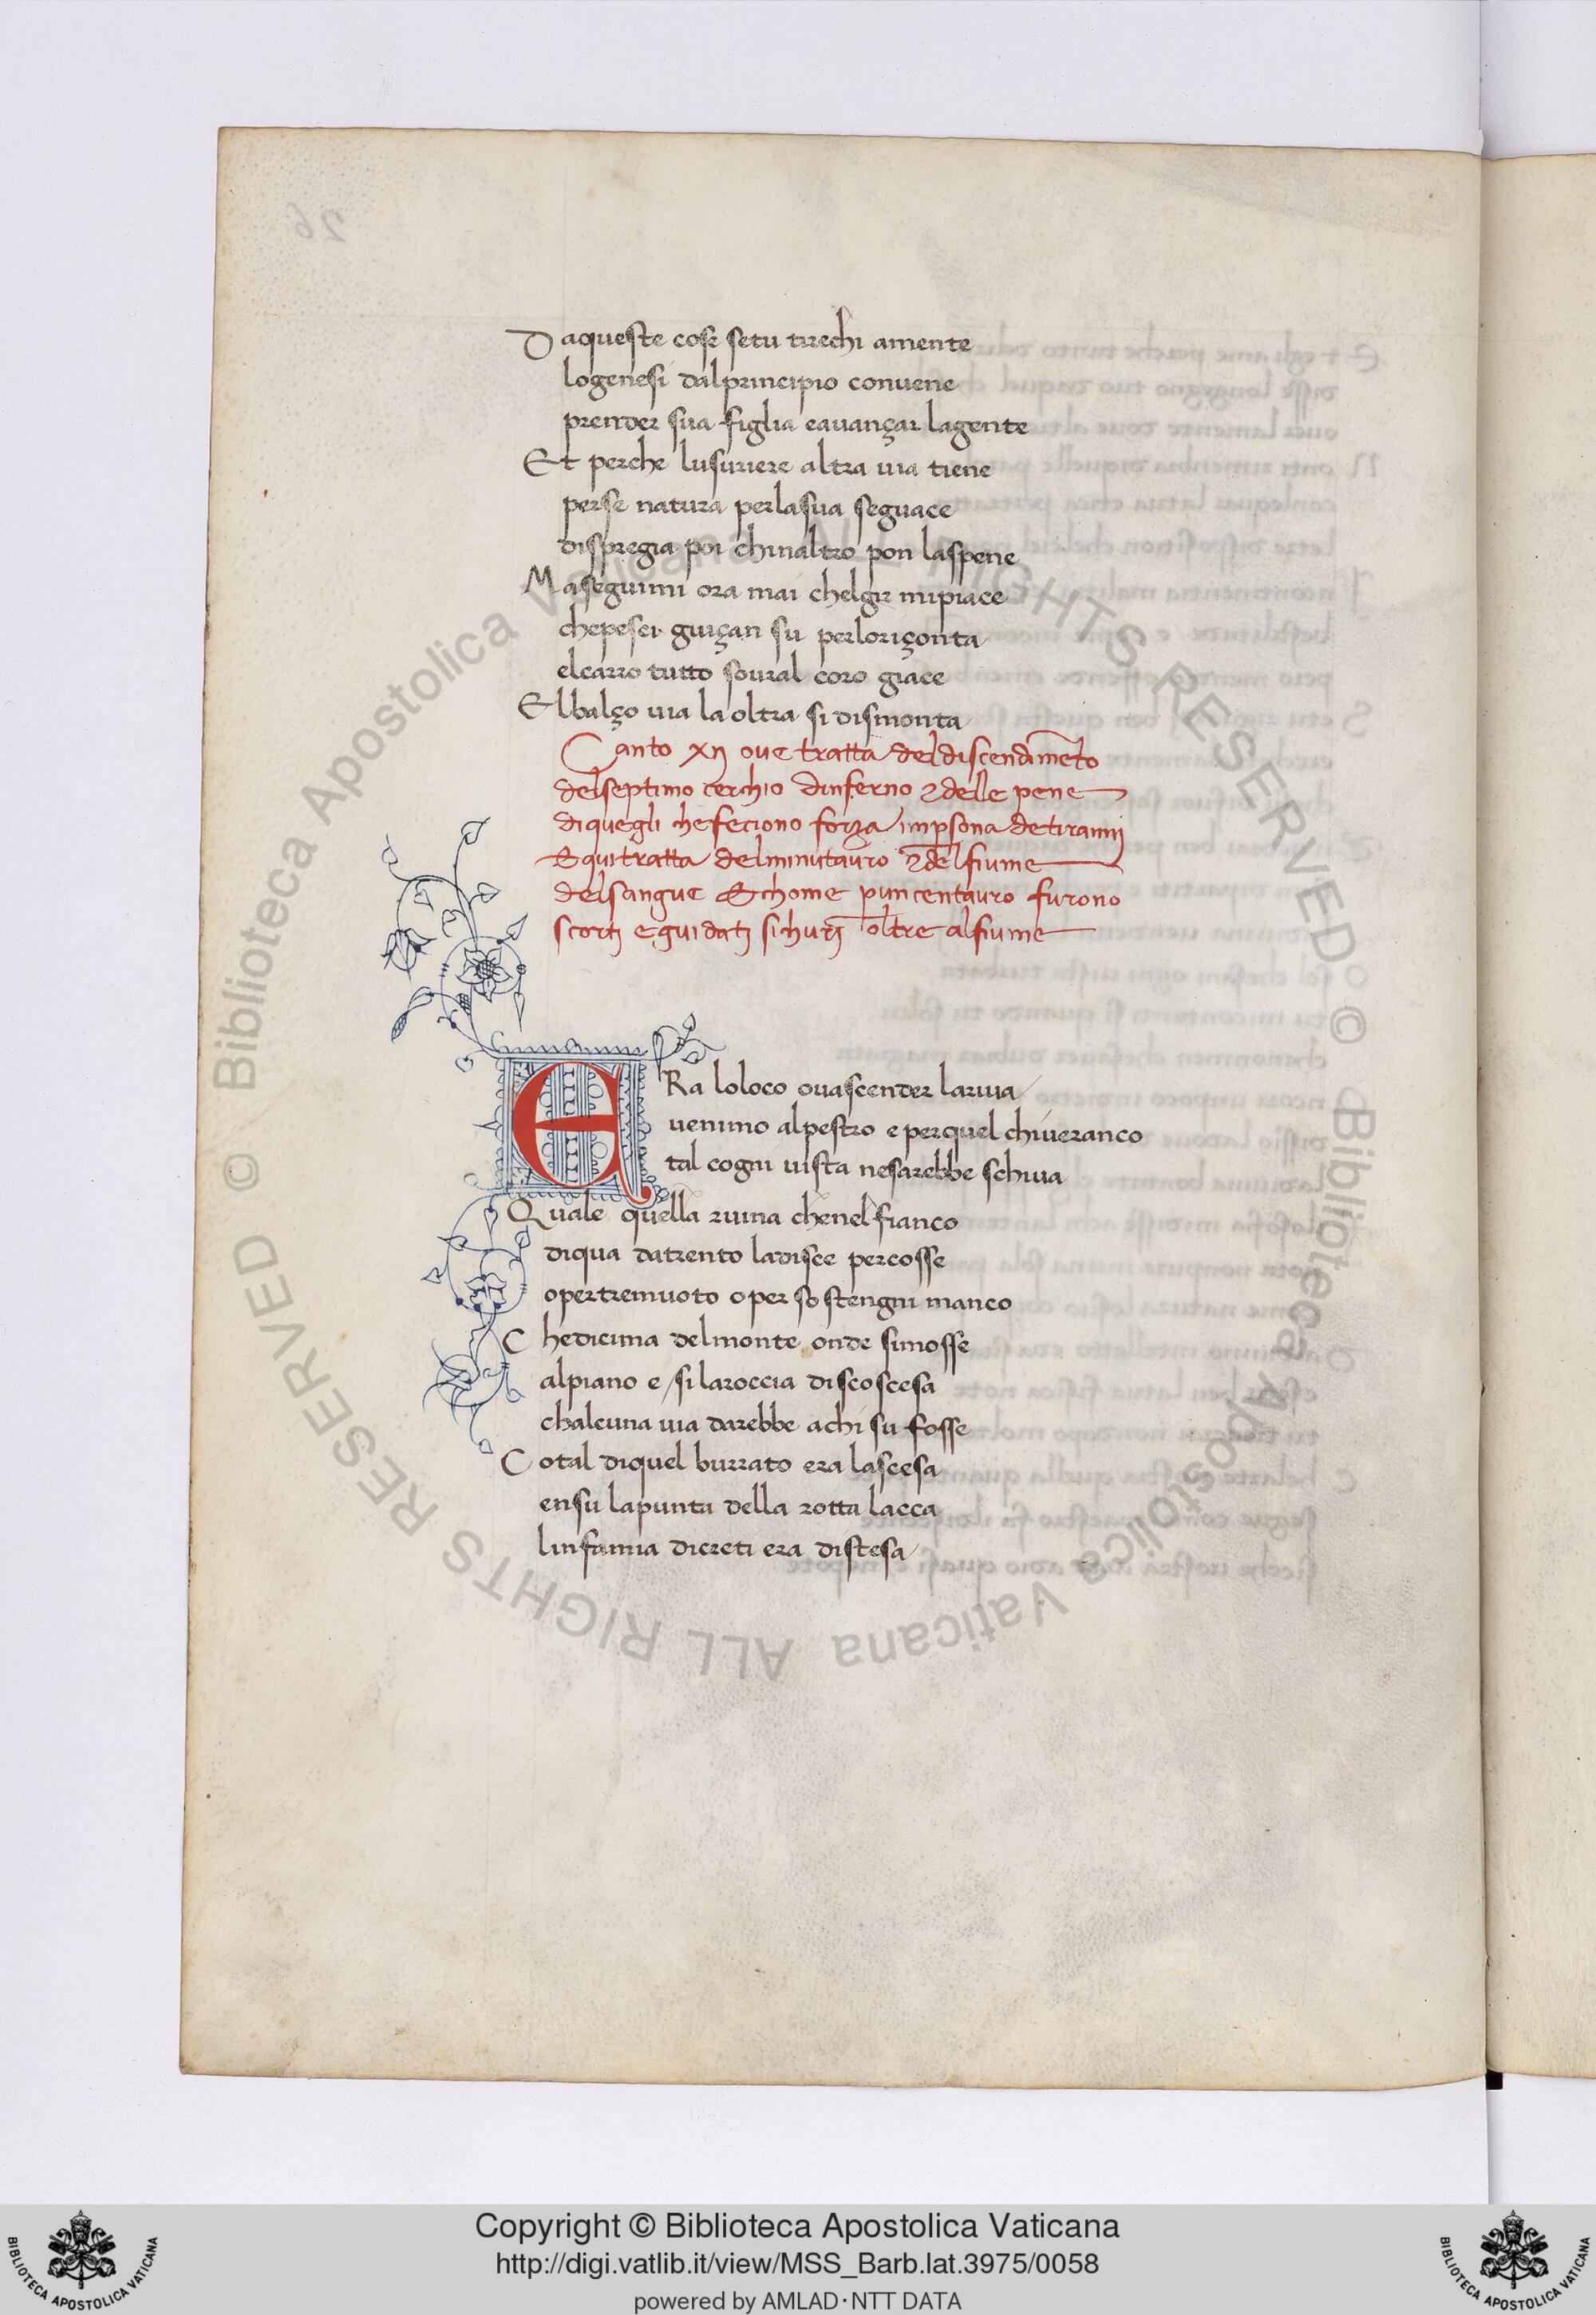 Daqueste cose setu tirechi amente
logenesi dalprincipio convene
prender sua figlia eavançar lagente
Et perche lusuriere altra via tiene
perse natura perlasua seguace
dispregia poi chinaltro pon laspene
Maseguimi ora mai chelgir mipiace
chepesci guiçan su perloriçonta
elcarro tutto soural coro giace
Elbalço via la oltra si dismonta
Canto xij ove tratta deldiscendim̅eto
delseptimo cerchio dinferno & delle pene
diquegli chefeciono forza impsona detiranni
& qui tratta delminutauro & delfiume
delsangue & chome p un centauro furono
scortj e guidatj sichurj oltre alfiume
ERa loloco ovascender lariva
venimo alpestro e perquel chiveranco
tal cogni vista nesarebbe schiva
Quale quella ruina chenel fianco
diqua datrento ladisce percosse
opertremuoto oper sostengni manco
Chedicima delmonte onde simosse
alpiano e si laroccia discoscesa
chalcuna via darebbe achi su fosse
Cotal diquel burrato era lascesa
ensu lapunta della rotta lacca
linfamia dicreti era distesa
26
© Biblioteca Apostolica Vaticana ALL RIGHTS RESERVED © Biblioteca Apostolica Vaticana ALL RIGHTS RESERVED
Copyright © Biblioteca Apostolica Vaticana
http://digi.vatlib.it/view/MSS_Barb.lat.3975/0058
powered by AMLAD·NTT DATA
BIBLIOTECA APOSTOLICA VATICANA
BIBLIOTECA APOSTOLICA VATICANA